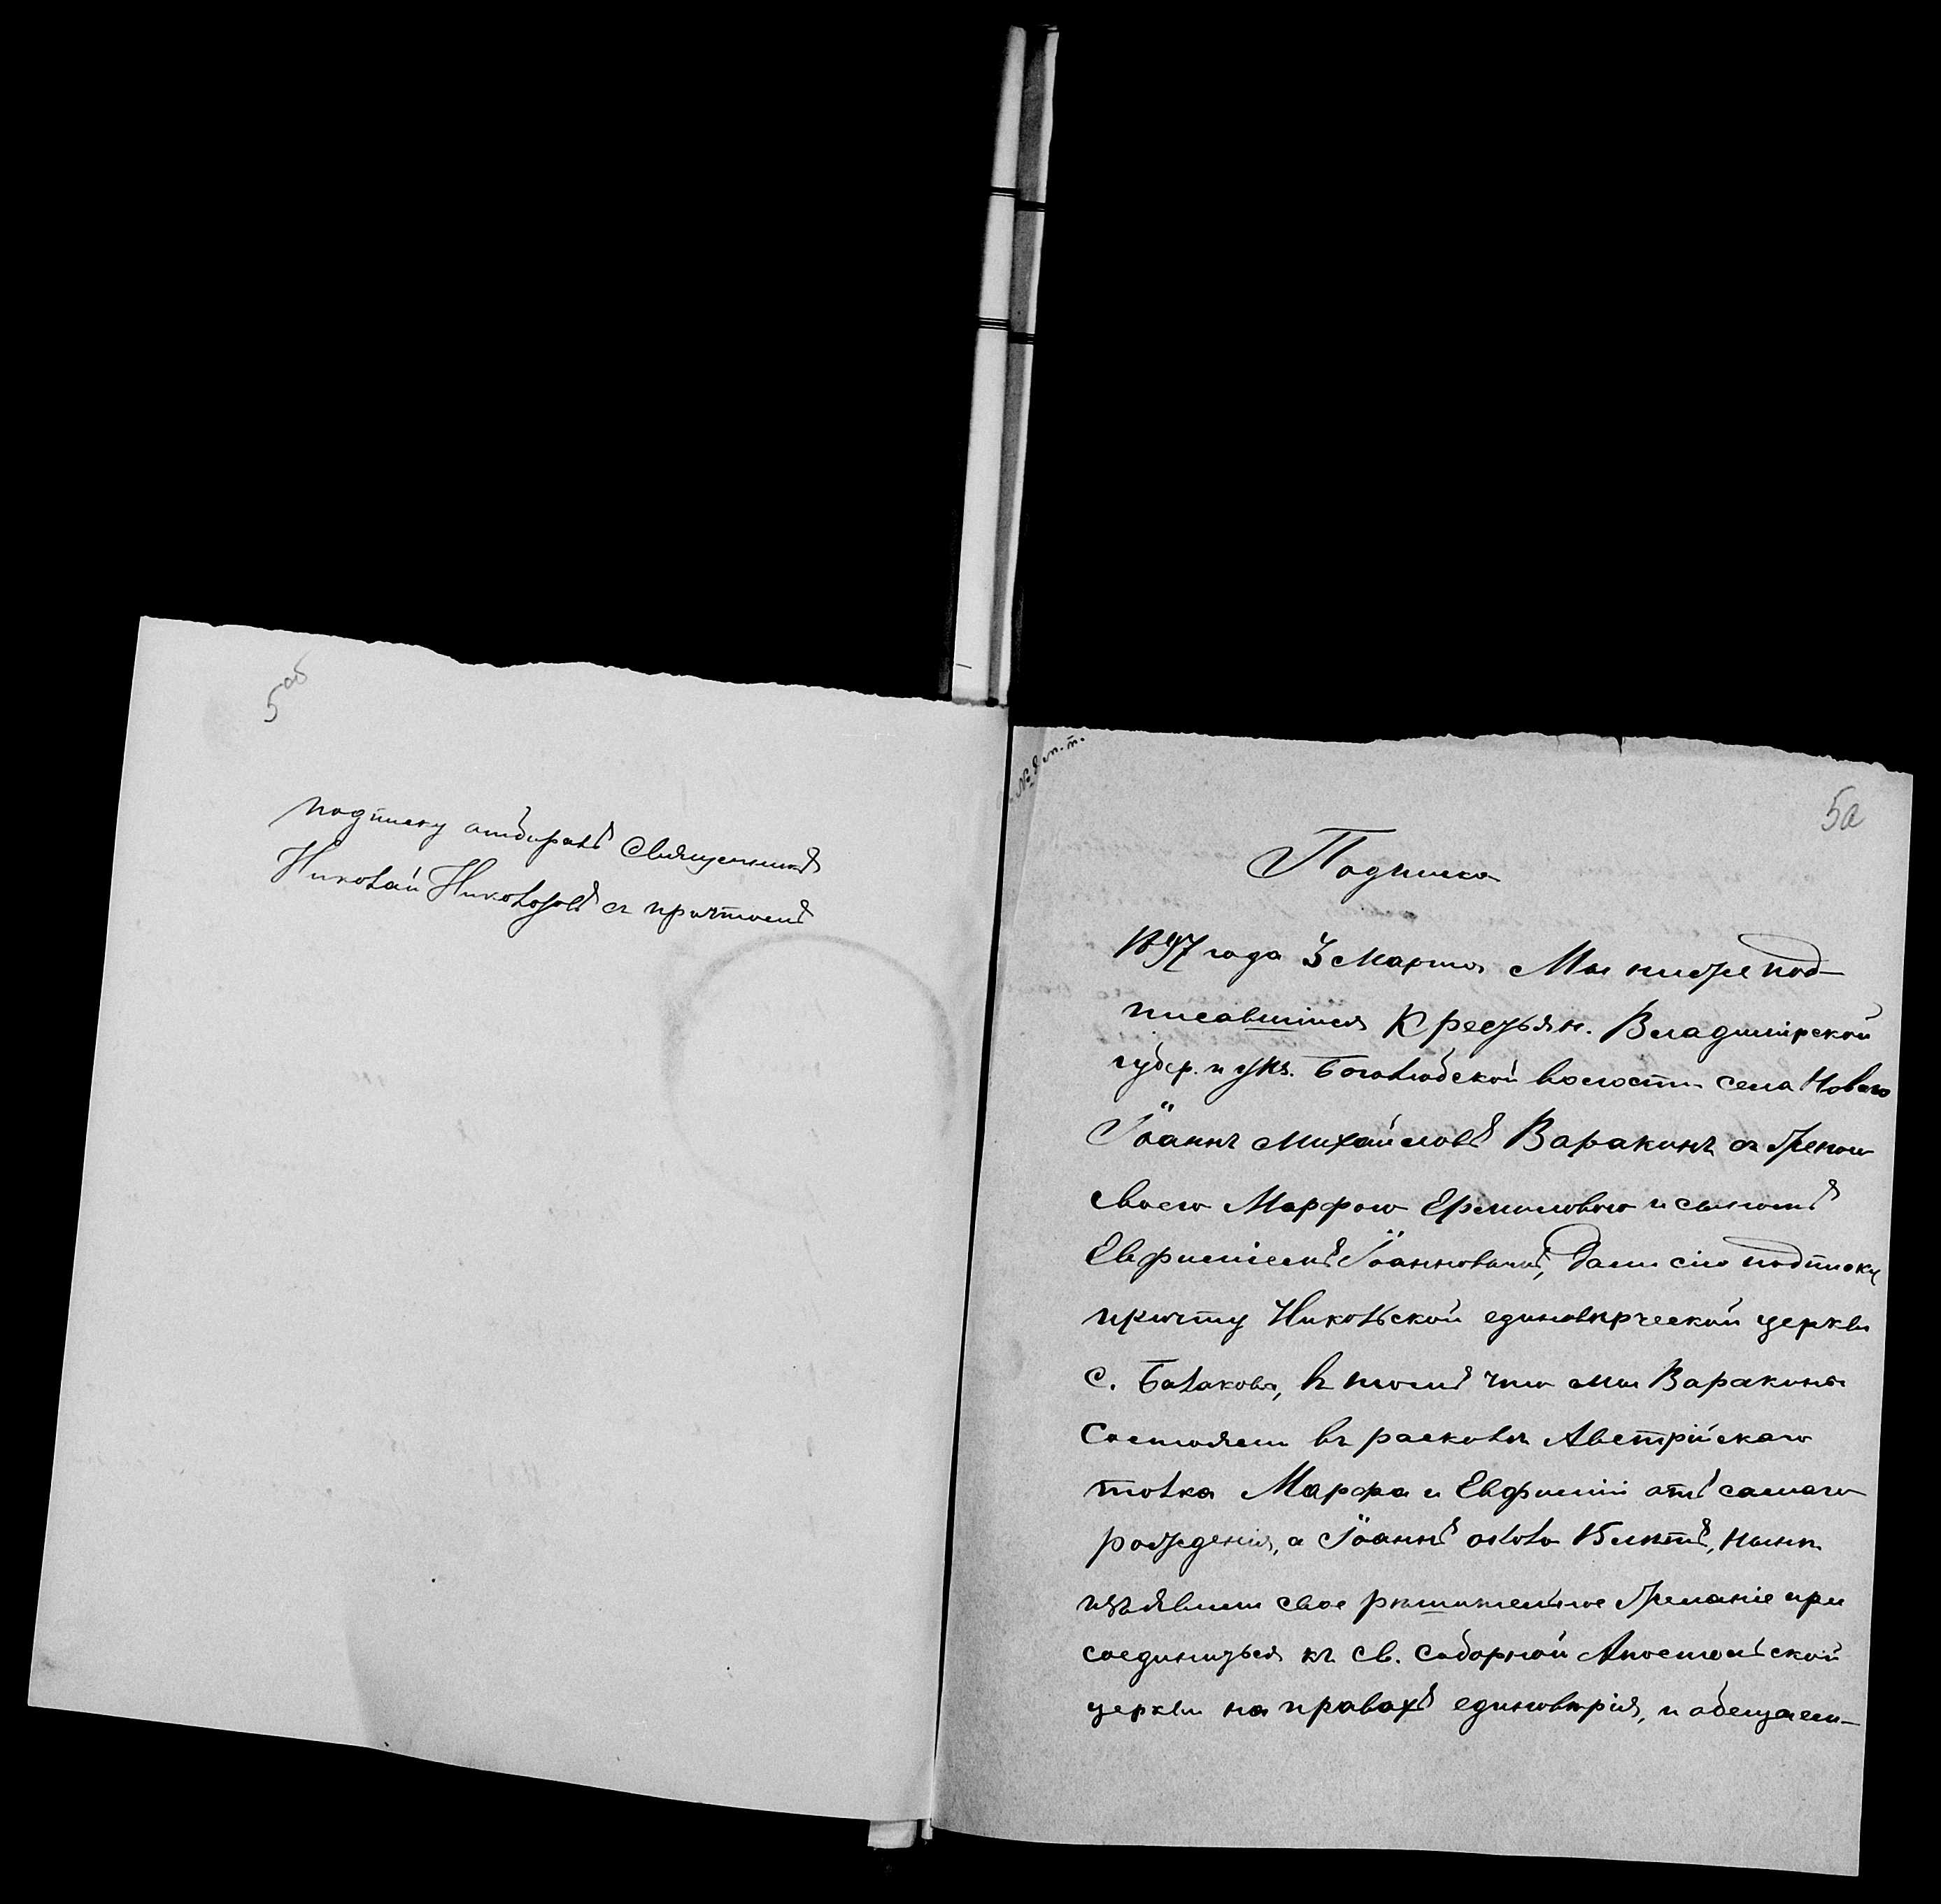 5об
подписку отбиралъ Священникъ
Николай Николоровъ съ причтомъ
№ 8 м. п.
5а
Подписка
1897 года 3 Марта Мы нижепод-
писавшіися Крестьян. Владимірской
губер. и уѣз. Боголюбской волости села Новаго
Іоаннъ Михайловъ Варакинъ съ женою
своею Марфою Ермиловою и сыномъ
Евфиміемъ Іоанновичъ, дали сію подписку
причту Никольской единовѣрческой церкви
с. Балакова, въ томъ что мы Варакины
Состояли въ расколѣ Австрійскаго
толка Марфа и Евфимій отъ самаго
рожденія, а Іоаннъ около 15 лѣтъ, нынѣ
изъявили свое рѣшительное желаніе при
соединиться къ св. Соборной Апостольской
церкви на правахъ единовѣрія, и обещаем-